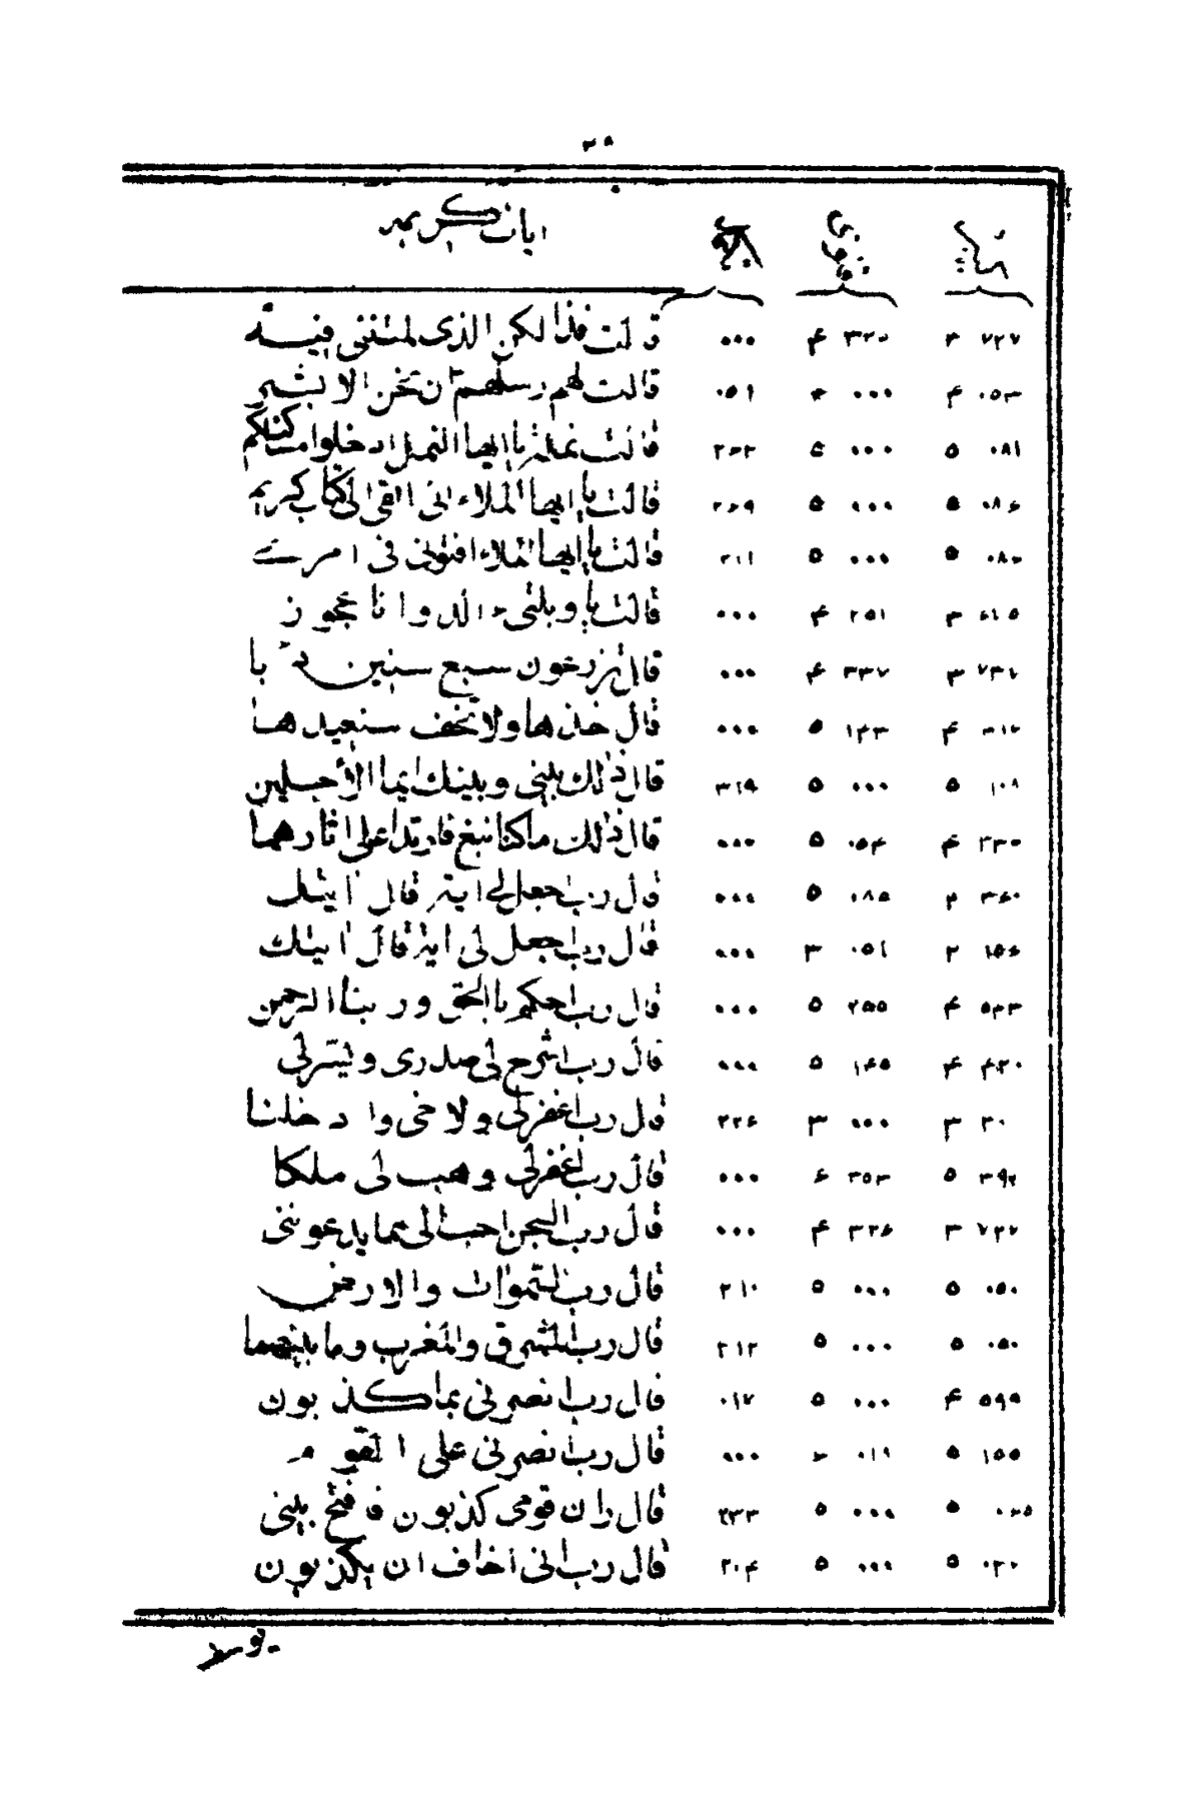 ایات کریمه
۷۲۷ ۳ ۳۲۵ ۴ ۰۰۰ قالت فذا لکن الذی لمتننی فیه
۰۵۳ ۴ ۰۰۰ ۴ ۰۵۱ قالت لهم رسلهم ان نحن الا بشر
۰۸۱ ۵ ۰۰۰ ۲۳۲ قالت نملة یا ایها النمل ادخلوا مساکنکم
۰۸۶ ۵ ۰۰۰ ۵ ۲۶۹ قالت یا ایها الملاء انی القی الی کتاب کریم
۵ ۰۰۰ ۵ ۲۱۱ قالت یا ایها الملاء افتونی فی امری
۳ ۲۵۱ ۴ ۰۰۰ قالت یا ویلتیء الد وانا عجوز
۳ ۳۳۷ ۴ ۰۰۰ قال تزرعون سبع سنین دابا
۴ ۱۴۳ ۵ ۰۰۰ قال خذها ولا تخف سنعیدها
۱۰۸ ۵ ۰۰۰ ۵ ۳۱۹ قال ذلک بینی وبینک ایما الاجلین
۲۳۰ ۴ ۰۵۴ ۵ ۰۰۰ قال ذلک ما کنا نبغ فارتدا علی اثارهما
۳۶۰ ۲ ۰۸۵ ۵ ۰۰۰ قال رب اجعل لی ایة قال ایتک
۱۵۶ ۲ ۰۵۱ ۳ ۰۰۰ قال رب اجعل لی ایة قال ایتک
۵۳۳ ۴ ۲۵۵ ۵ ۰۰۰ قال رب احکم باالحق وربنا الرحمن
۴۳۰ ۴ ۱۴۵ ۵ ۰۰۰ قال رب اشرح لی صدری ویسرلی
۳۰ ۳ ۰۰۰ ۳ ۲۲۶ قال رب اغفرلی ولاخی وادخلنا
۳۹۲ ۵ ۳۵۳ ۶ ۰۰۰ قال رب اغفرلی وهب لی ملکا
۷۳۲ ۳ ۳۲۶ ۴ ۰۰۰ قال رب السجن احب الی مما یدعوننی
۰۵۰ ۵ ۰۰۰ ۵ ۲۱۰ قال رب السموات والارض
۰۵۰ ۵ ۰۰۰ ۵ ۲۱۲ قال رب المشرق والمغرب وما بینهما
۵۹۹ ۴ ۰۰۰ ۵ ۰۱۷ قال رب انصرنی بما کذبون
۱۵۵ ۵ ۰۱۹ ۰۰۰ قال رب انصرنی علی القوم
۵ ۰۰۰ ۵ ۲۳۳ قال رب ان قومی کذبون فافتح بینی
۵ ۰۰۰ ۵ ۲۰۴ قال رب انی اخاف ان یکذبون